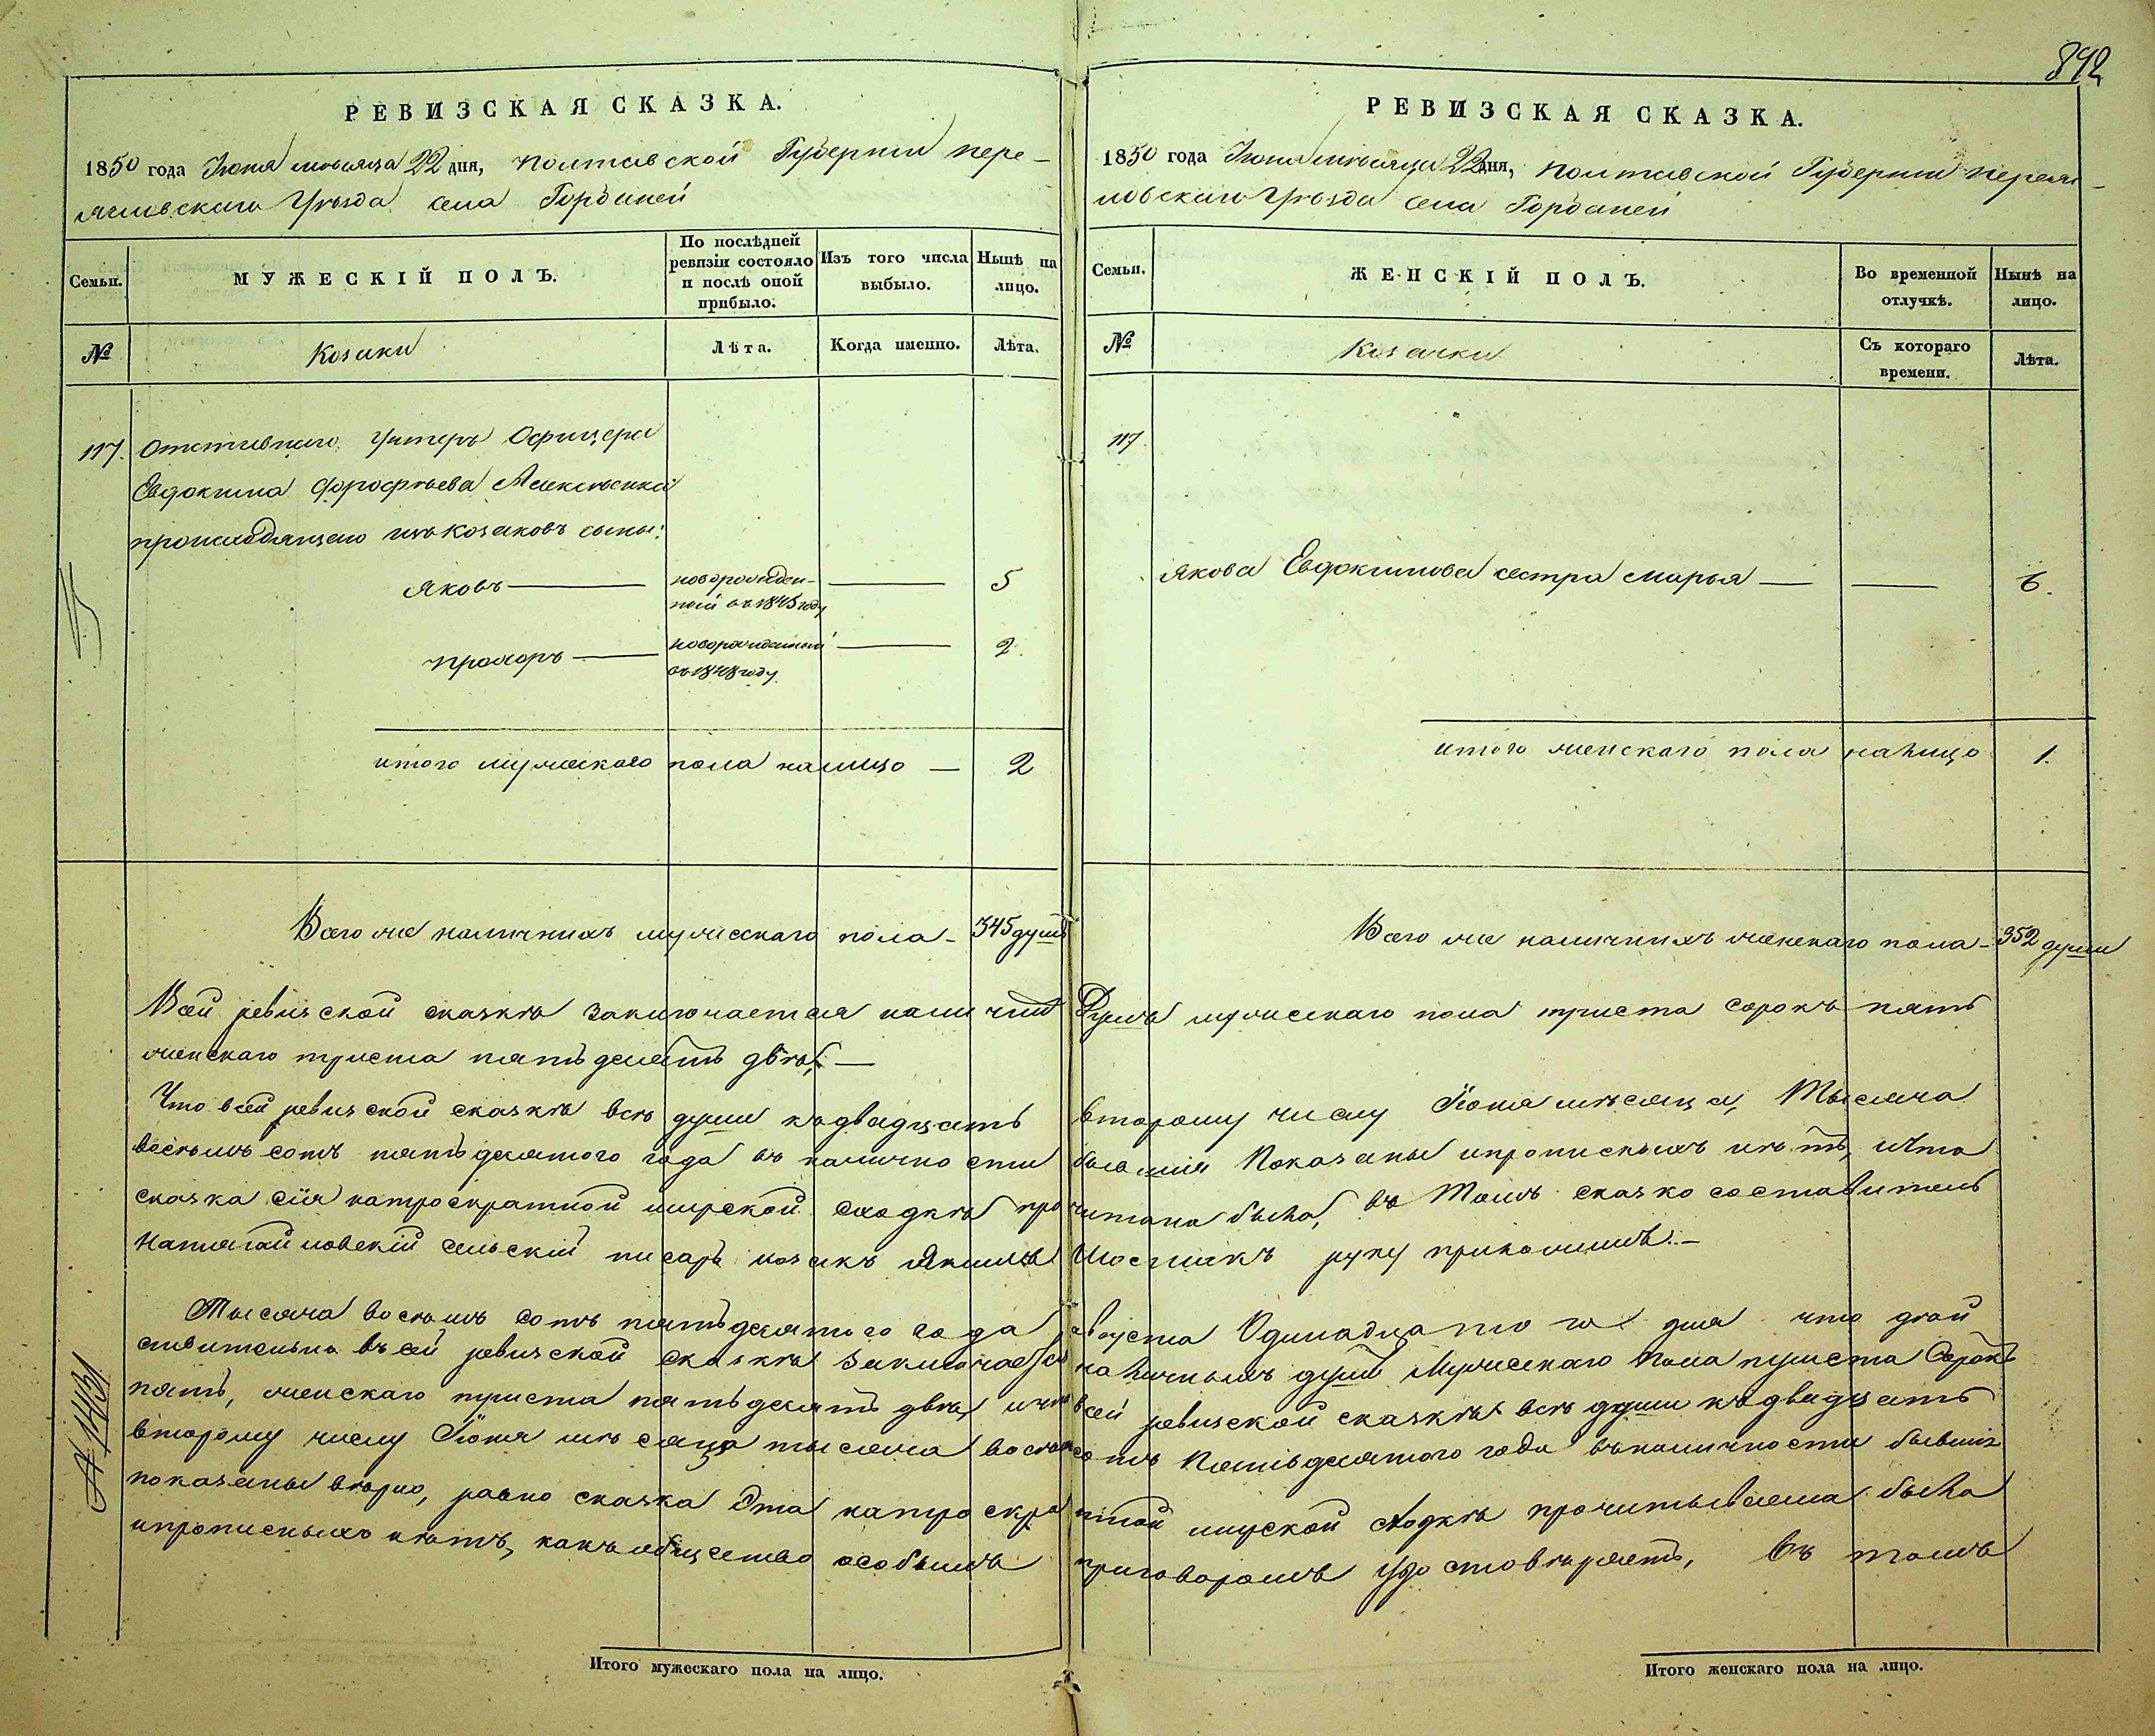 892
РЕВИЗСКАЯ СКАЗКА.
1850 года Іюня мѣсяца 22 дня, Полтавской Губерніи Пере-
яславскаго Уѣзда села Гордыней
Семьи.
МУЖЕСКІЙ ПОЛЪ.
По послѣдней ревизіи состояло и послѣ оной прибыло.
Изъ того числа выбыло.
Нынѣ на лицо.
№
Козаки
Лѣта.
Когда именно.
Лѣта.
117.
Отставнаго Унтеръ Офицера
Евдокима Дорофѣева Алексѣенка
происходящаго изъ Козаковъ сыны:
Яковъ — новорожден-
ный въ 1845 году — 5
Прохоръ — новорожденный
въ 1848 году — 2.
итого мужескаго пола налицо — 2
Всего же наличныхъ мужескаго пола — 345 душъ
РЕВИЗСКАЯ СКАЗКА.
1850 года Іюня мѣсяца 22 дня, Полтавской Губерніи Переяс-
лавскаго Уѣзда села Гордыней
Семьи.
ЖЕНСКІЙ ПОЛЪ.
Во временной отлучкѣ.
Нынѣ на лицо.
№
Козачки
Съ котораго времени.
Лѣта.
117.
Якова Евдокимова сестра Марья — — 6.
итого женскаго пола налицо 1.
Всего же наличныхъ женскаго пола — 352 души
Всей ревизской сказкѣ заключается наличныхъ Душъ мужескаго пола триста сорокъ пять
женскаго триста пятьдесятъ двѣ, —
Что всей ревизской сказкѣ всѣ души къ двадцать второму числу Іюня мѣсяца, Тысяча
восѣмъ сотъ пятьдесятого года въ наличности бывшія Показаны ипрописныхъ нѣтъ, ичто
сказка сія натроекратной мирской сходкѣ прочитана была, въ Томъ сказко составитель
сельскій писарь козакъ руку приложилъ. —
Тысяча восѣмъ сотъ пятьдесятого года августа Одинадцатого дня что дѣй
ствительно въ сей ревизской сказкѣ заключается наличныхъ душъ Мужескаго Пола триста Сорокъ
пять, женскаго триста пятьдесятъ двѣ, ичто всей ревизской сказкѣ всѣ души къ двадцать
второму числу Іюня мѣсяца тысяча восѣмъ сотъ Пятьдесятого года въ наличности бывшія
показаны вѣрно, равно сказка Эта натроекратной мирской сходкѣ прочитываема была
ипрописныхъ нѣтъ, какъ общество особымъ приговоромъ удостовѣряетъ, въ томъ
Итого мужескаго пола на лицо.
Итого женскаго пола на лицо.